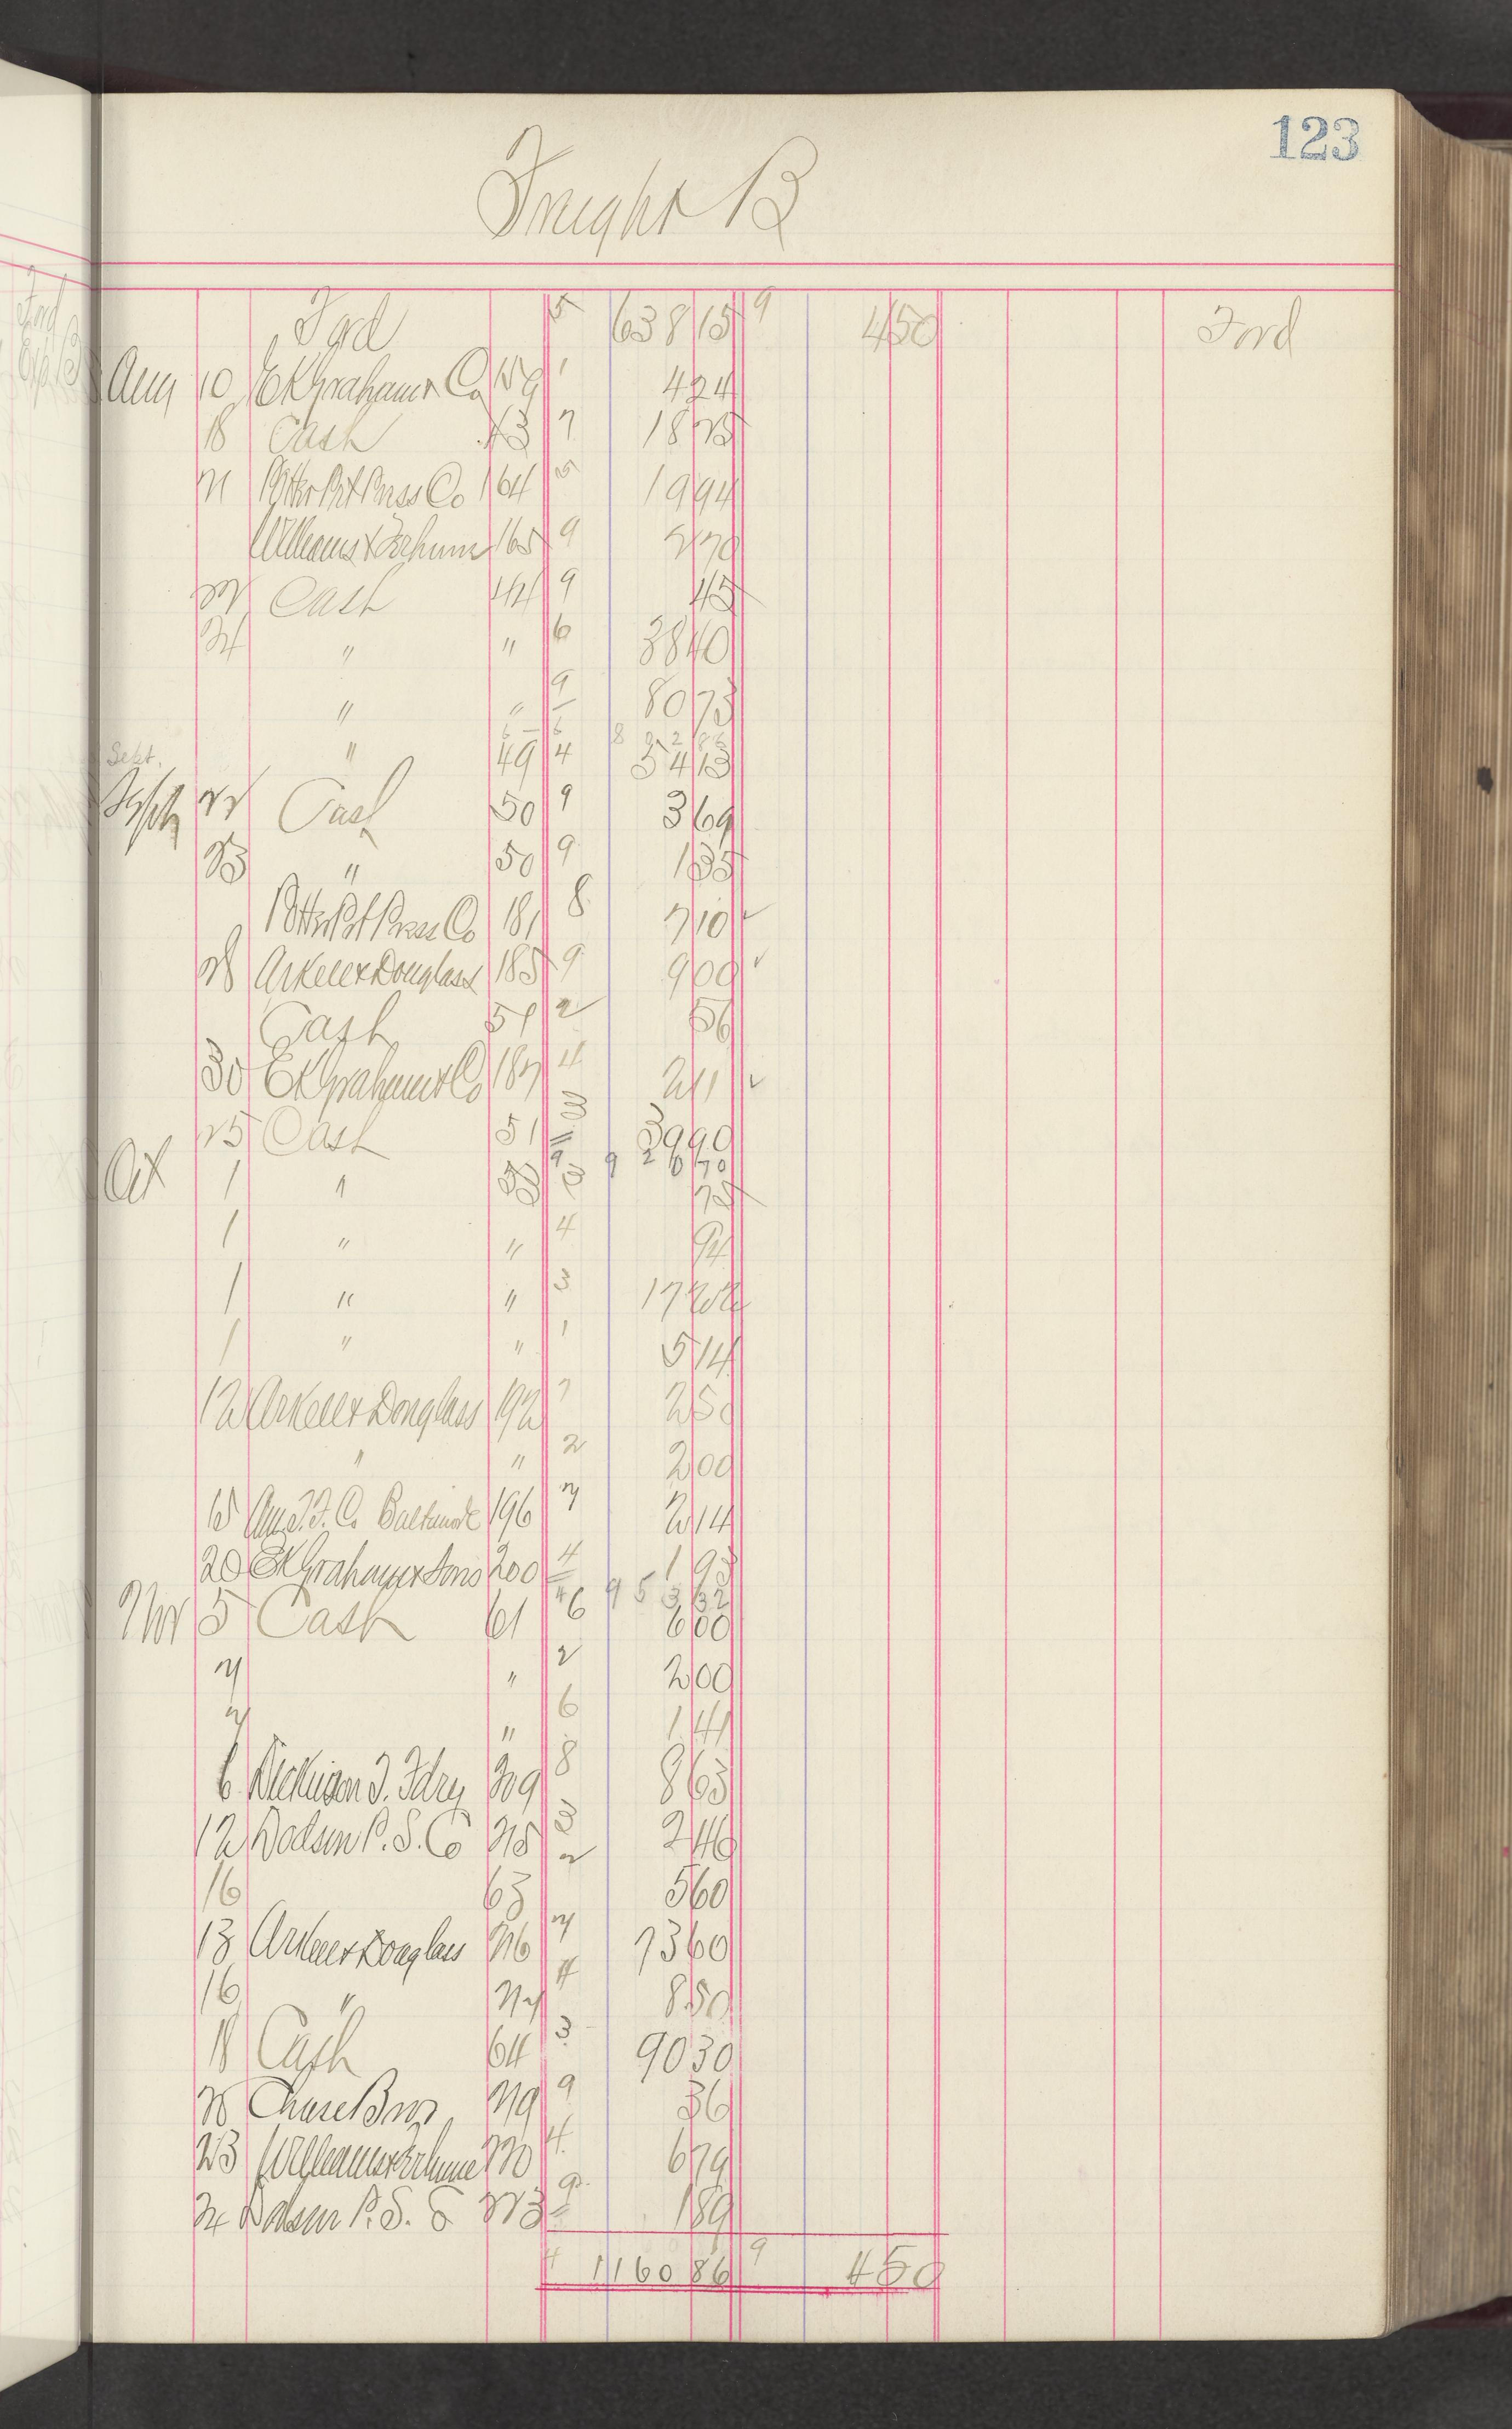 123
Freight B
Ford 5 638 15 9 4 50 Ford
Aug 10 E K Graham & Co 159 1 4 24
18 Cash 43 7 18 25
21 Potter Prt Press Co 164 5 19 94
Williams & Dorhum 165 9 2 70
22 Cash 44 9 45
24 " " 6 38 40
" " 9 80 73
6 6 8 32 86
Sept. " 49 4 54 13
Septr 22 Cash 50 9 3 69
23 " 50 9 1 35
Potter Prt Press Co 181 8 7 10 ✓
28 Arkell & Douglass 185 9 9 00 ✓
Cash 51 2 56
30 E K Graham & Co 187 4 2 11 ✓
25 Cash 51 3 39 90
9 9 26 70
Oct 1 " 53 3 75
1 " " 4 94
1 " " 3 17 22
1 " " 1 5 14
12 Arkell & Douglass 192 7 2 50
" " 2 2 00
15 Am. T. F. Co Baltimore 196 7 2 14
20 E K Graham & Sons 200 4 1 93
4 9 5 3 32
Nov 5 Cash 61 6 6 00
7 " 2 2 00
7 " 6 1 41
6 Dickinson T. Fdry 209 8 8 63
12 Dodson P. S. Co 215 3 2 46
16 63 2 5 60
13 Arkell & Douglass 216 7 73 60
16 " 217 4 8 50
18 Cash 64 3 90 30
20 Chase Bros 219 9 36
23 Williams & 220 4 6 79
24 Dodson P. S. Co 223 9 1 89
4 1160 86 9 4 50